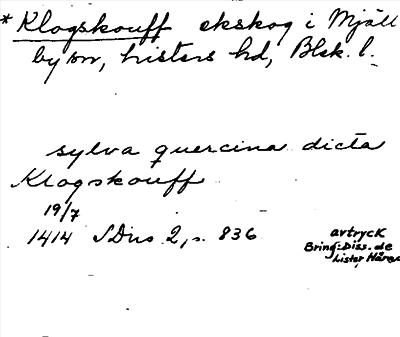 * Klogskouff ekskog i Mjäll
by sn, Listers hd, Blek. l.
sylva quercina dicta
Klogskouff
19/7
1414 SDns 2, s. 836
avtryck
Bring: Diss. de
Lister Härad